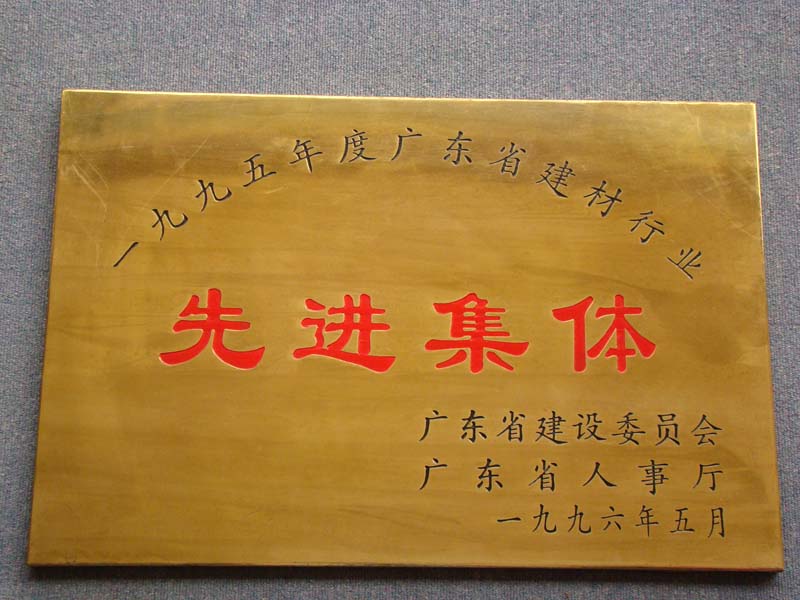 一九九五年度广东省建材行业
先进集体
广东省建设委员会
广东省人事厅
一九九六年五月